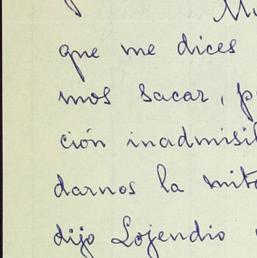 Mu
que me dices
mos sacar, p
ción inadmisi
darnos la mita
dijo Lojendio